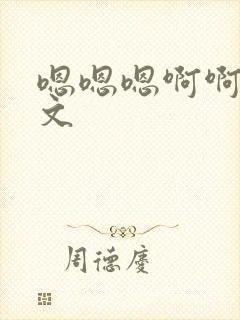 嗯嗯嗯啊啊
文
周德庆